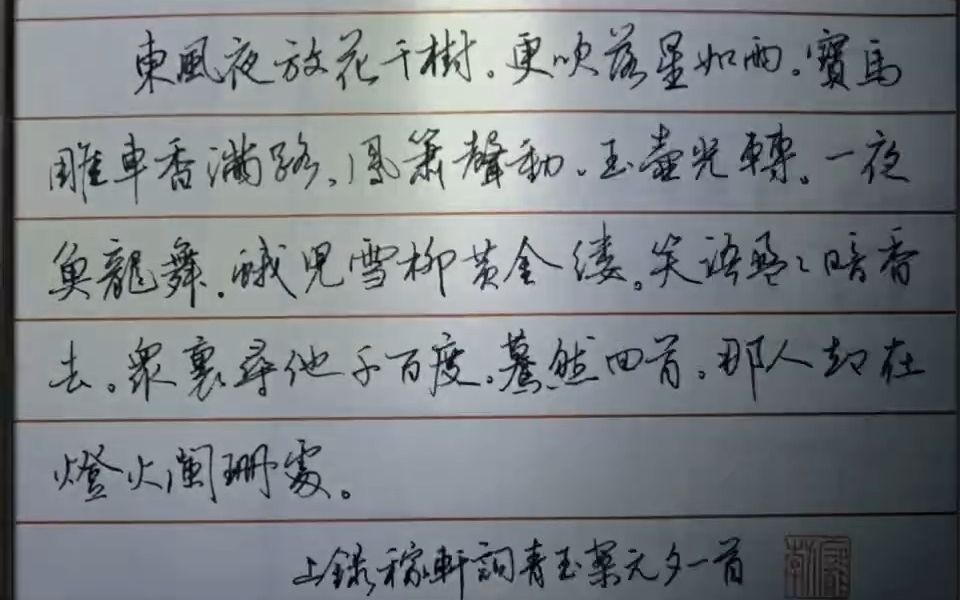 東風夜放花千樹。更吹落星如雨。寶馬
雕車香滿路。鳳簫聲動。玉壺光轉。一夜
魚龍舞。蛾兒雪柳黄金縷。笑語盈々暗香
去。眾裏尋他千百度。驀然回首。那人却在
燈火闌珊處。
上錄稼軒詞青玉案元夕一首